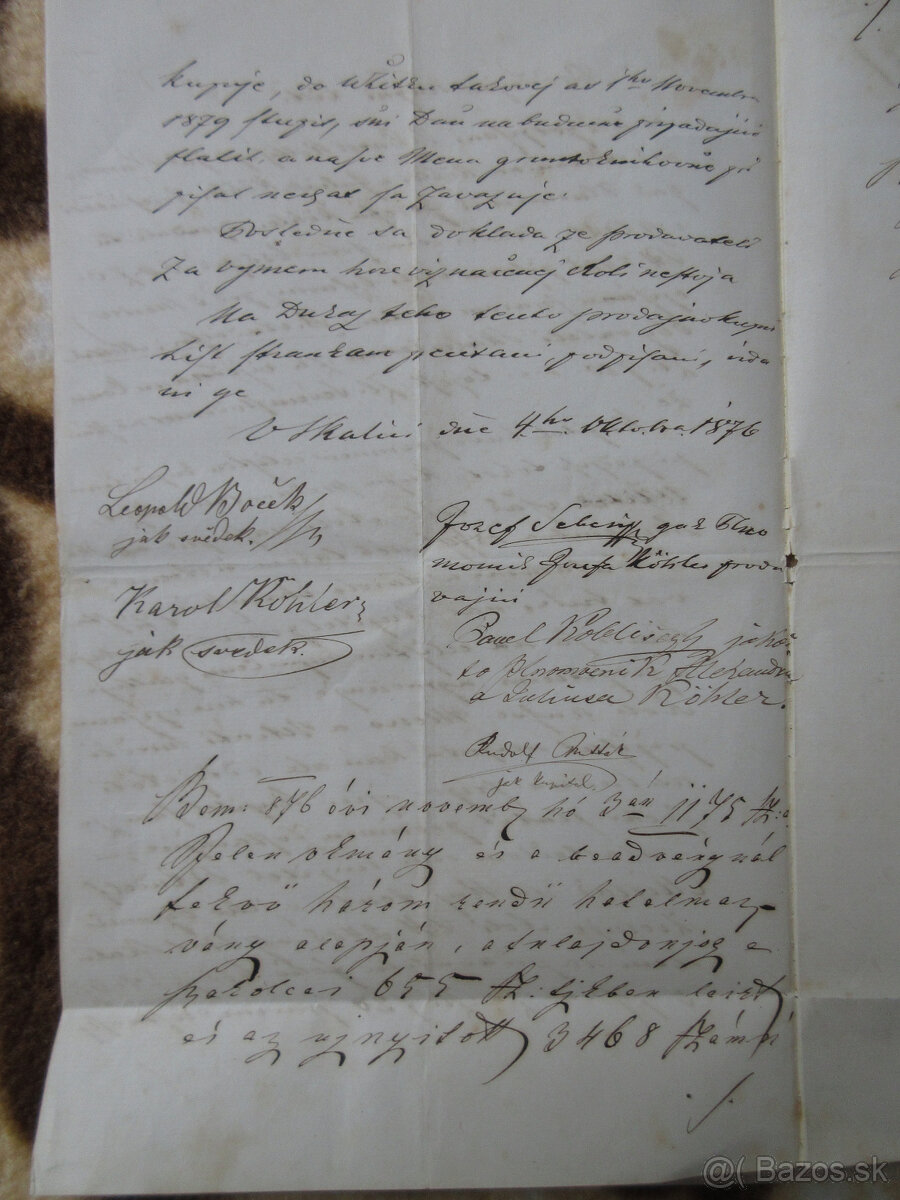 kupuje, do Užitku takovej od 1ho Novembra
1879 stupit, s ní Daň na budúcně pripadajúci
platit a na své Mena gruntoknihovňe pri
pisat nechat sa zavazuje.
Posledňe sa dokládá že prodavateli
Za vymem hore vyznačenej Roli nestoja
Na Dukaz teho tento prodajno kupni
List strankam prečitaní, podpisani, vida
ni ge
V Skalici dňe 4ho Oktobra 1876
Leopold Boček
jak svědek.
Karol Köhler
jak svedek.
Jozef gak Plno
mocnik Jozefa Köhler proda
vajici
Pavel jakož
to Plnomocnik Alexandra
a Juliusa Köhler.
Rudolf
jak kupitel.
Bem: 876 évi novemb hó 3án 1175 sz: a
Jelen okmány és a beadványnál
fekvő három rendű hatalmaz
vány alapján, a tulajdonjog a
szakolcai 655 sz: tjkben leírt
és az ujnyitott 3468 számú
./.
@( Bazos.sk